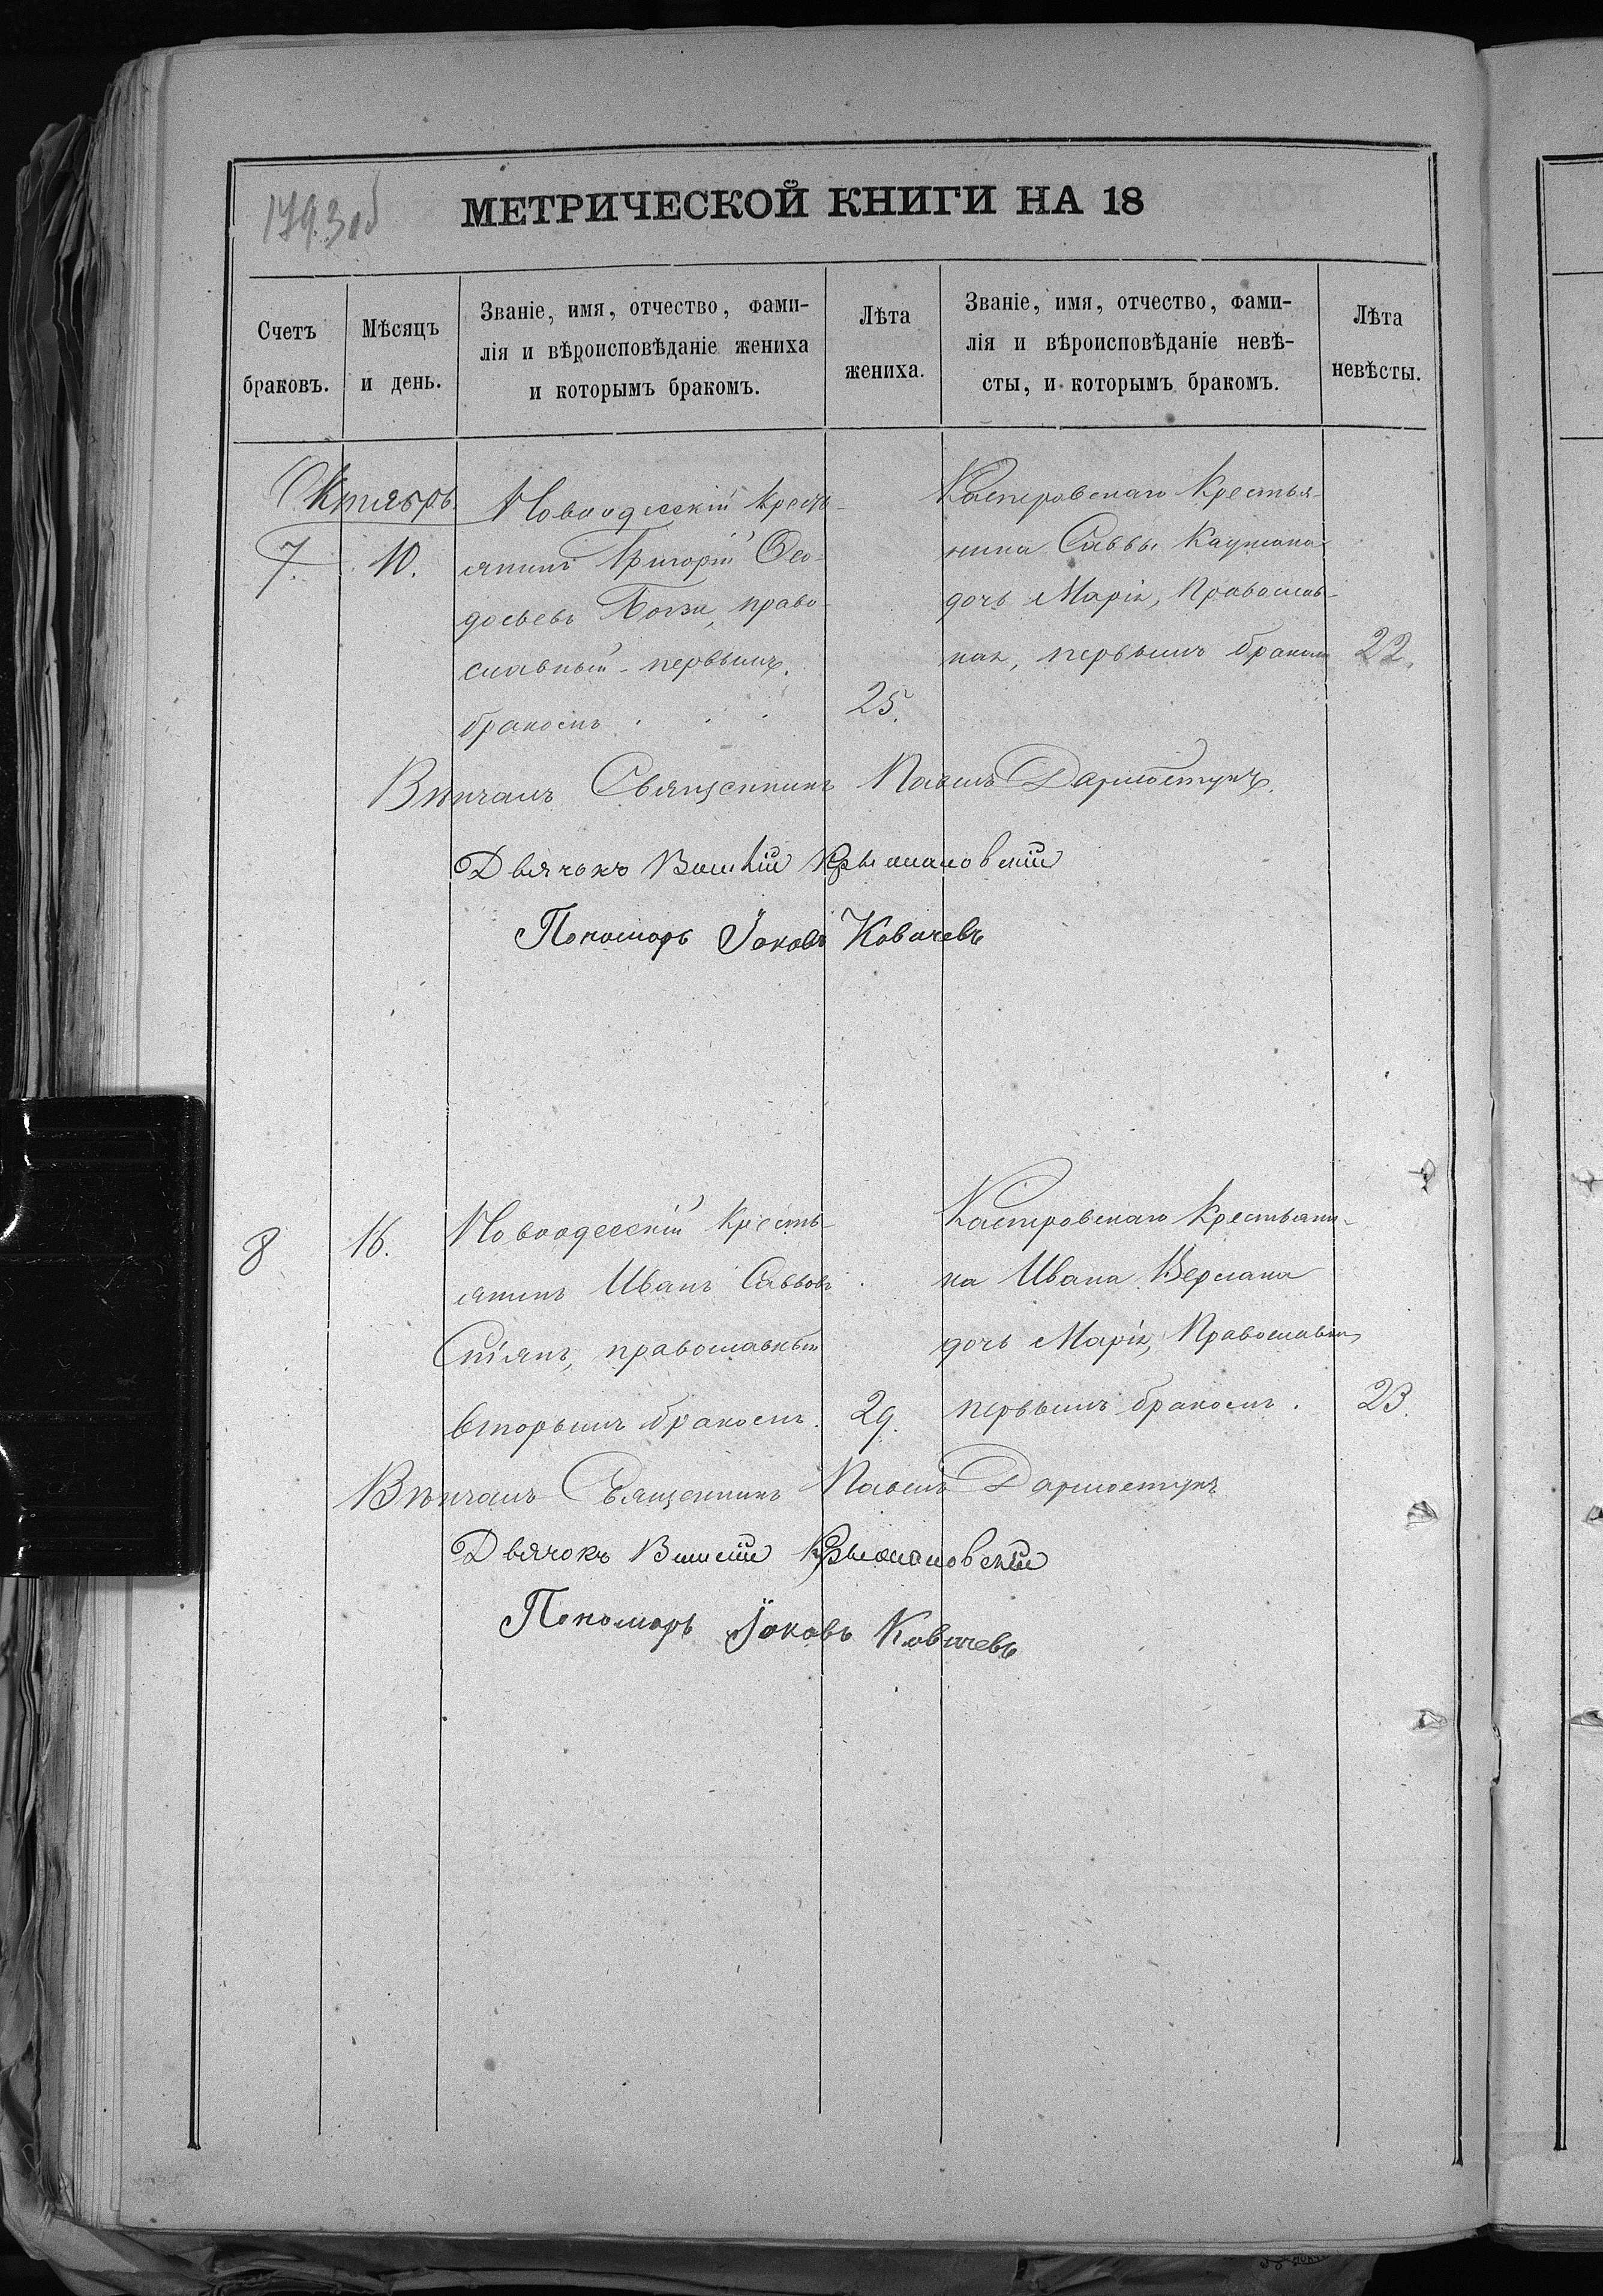 МЕТРИЧЕСКОЙ КНИГИ НА 18
Счетъ браковъ.
Мѣсяцъ и день.
Званіе, имя, отчество, фами-
лія и вѣроисповѣданіе жениха
и которымъ бракомъ.
Лѣта жениха.
Званіе, имя, отчество, фами-
лія и вѣроисповѣданіе невѣ-
сты, и которымъ бракомъ.
Лѣта невѣсты.
Октябрь
7.
10.
Новоодесскій кресть-
янинъ Григорій Ѳео-
досьевъ право-
славный первымъ
бракомъ
25.
Касперовскаго крестья-
нина Саввы Каушана
дочь Марія, Православ-
ная, первымъ бракомъ
22.
Вѣнчалъ Священникъ Павелъ
Дьячокъ
Пономарь Іаковъ Ковачевъ
8
16.
Новоодесскій кресть-
янинъ Иванъ Саввовъ
православный
вторымъ бракомъ.
29.
Касперовскаго крестьяни-
на Ивана Верлана
дочь Марія, Православная
первымъ бракомъ.
23.
Вѣнчалъ Священникъ Павелъ
Дьячокъ
Пономарь Іаковъ Ковачевъ